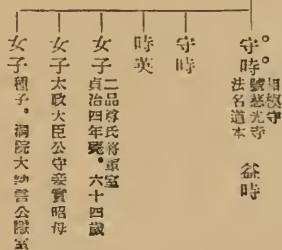 守時
相模守
號慈光寺
法名道本
益時
守時
時英
女子
二品尊氏將軍室
貞治四年薨。六十四歲
女子
太政大臣公守妾實昭母
女子
種子。洞院大納言公隂室